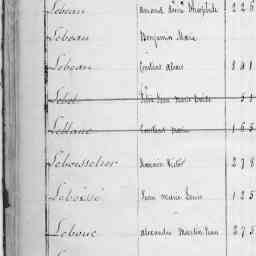 Lebeau Amand Théophile 226
Lebeau Benjamin Marie
Lebeau Constant Alexis 841
Lebel Jean Marie 51
Leblanc Constant 165
Leboisselier Victor 278
Leboissé Jean Marie Louis 125
Lebouc Alexandre Martin Jean 275